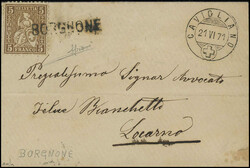 5 FRANCO 5
BORGNONE
CAVIGLIANO
21 VI 72
Pregiatissimo Signor Avvocato
Felice Bianchetti
Locarno
BORGNONE